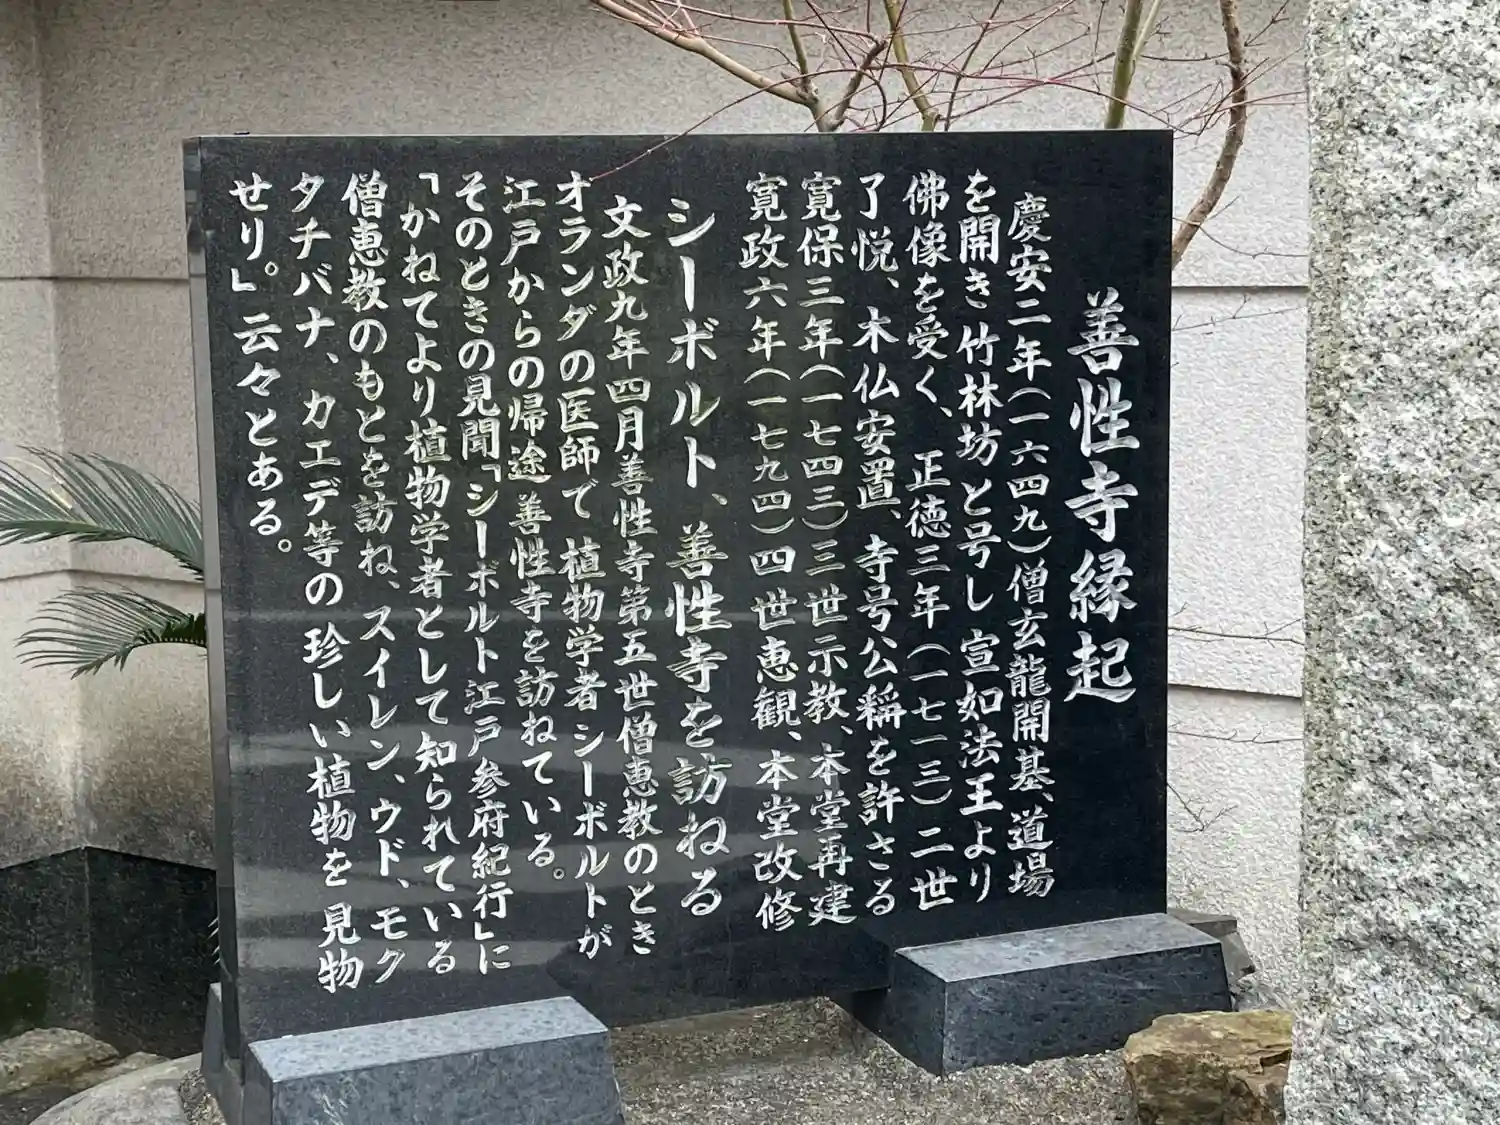 善性寺縁起
慶安二年(一六四九)僧玄龍開基、道場
を開き竹林坊と号し宣如法王より
佛像を受く、正徳三年(一七一三)二世
了悦、木仏安置、寺号公稱を許さる
寛保三年(一七四三)三世示教、本堂再建
寛政六年(一七九四)四世恵観、本堂改修
シーボルト、善性寺を訪ねる
文政九年四月善性寺第五世僧恵教のとき
オランダの医師で植物学者シーボルトが
江戸からの帰途善性寺を訪ねている。
そのときの見聞「シーボルト江戸参府紀行」に
「かねてより植物学者として知られている
僧恵教のもとを訪ね、スイレン、ウド、モク
タチバナ、カエデ等の珍しい植物を見物
せり。」云々とある。